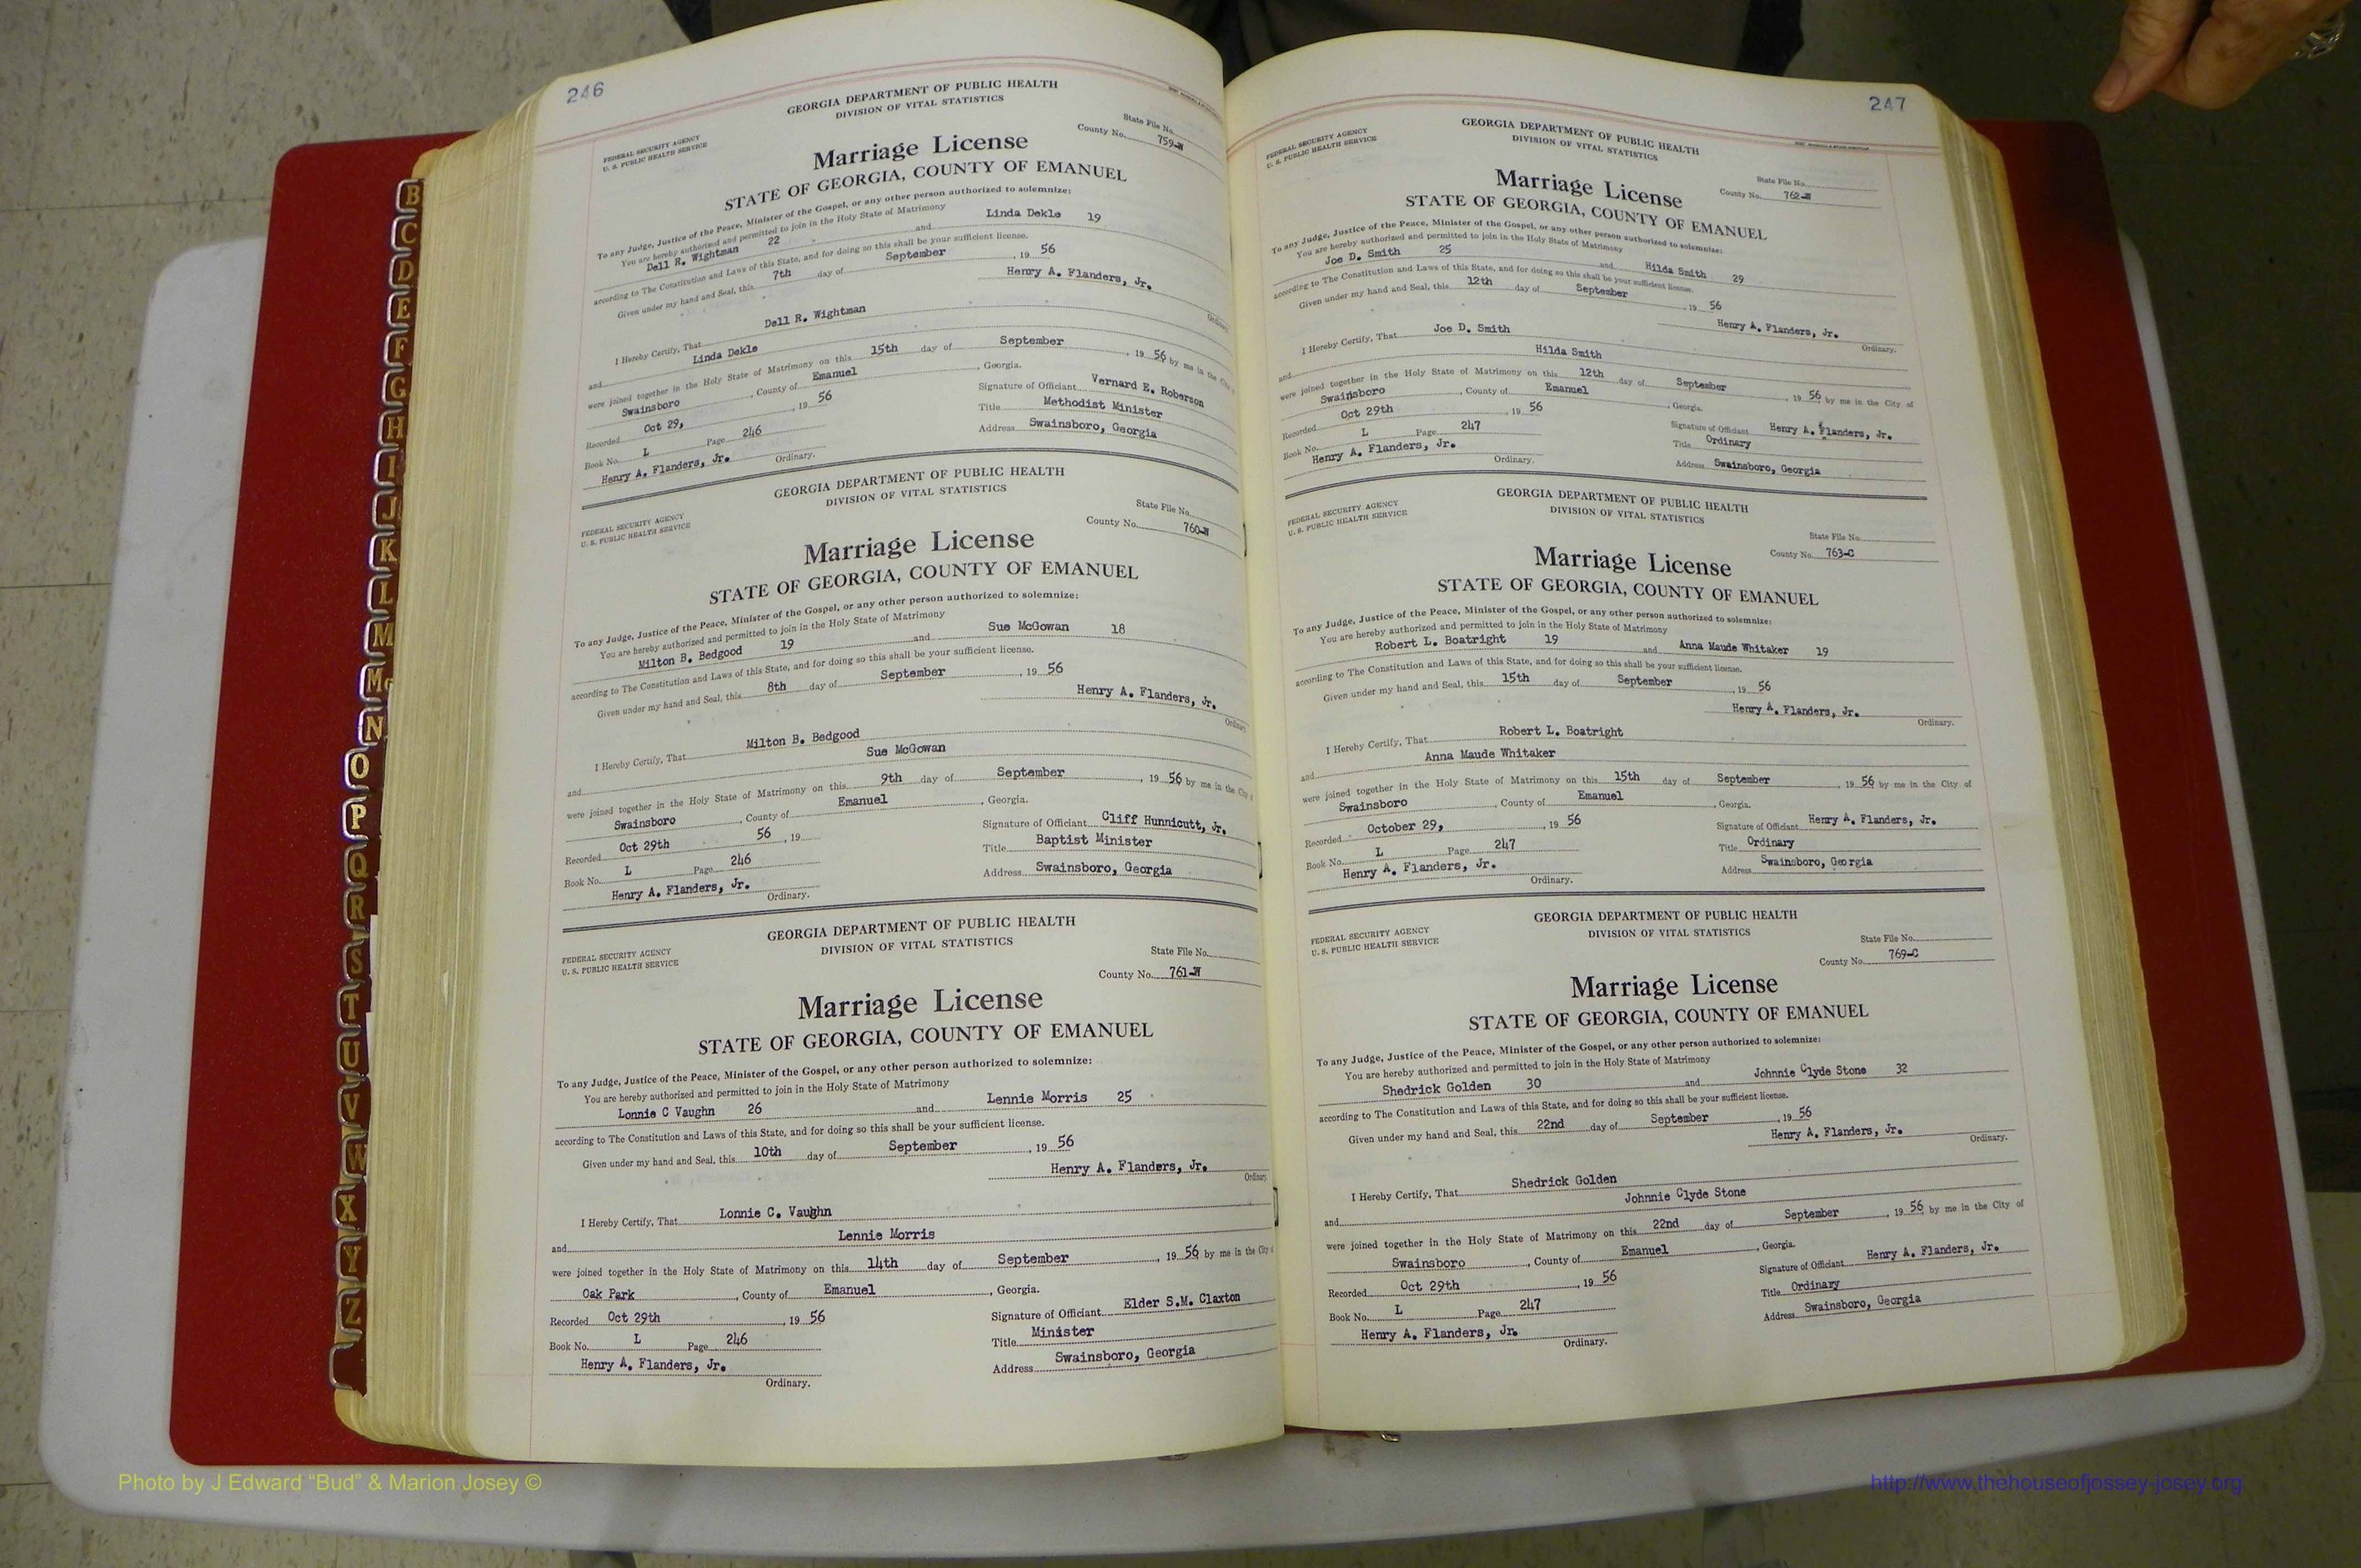 246
GEORGIA DEPARTMENT OF PUBLIC HEALTH
DIVISION OF VITAL STATISTICS
FEDERAL SECURITY AGENCY
U. S. PUBLIC HEALTH SERVICE
State File No.
County No. 759-W
Marriage License
STATE OF GEORGIA, COUNTY OF EMANUEL
To any Judge, Justice of the Peace, Minister of the Gospel, or any other person authorized to solemnize:
You are hereby authorized and permitted to join in the Holy State of Matrimony
Dell R. Wightman 22 and Linda Dekle 19
according to The Constitution and Laws of this State, and for doing so this shall be your sufficient license.
Given under my hand and Seal, this 7th day of September , 19 56
Henry A. Flanders, Jr.
Ordinary.
I Hereby Certify, That Dell R. Wightman
and Linda Dekle
were joined together in the Holy State of Matrimony on this 15th day of September , 19 56 by me in the City of
Swainsboro , County of Emanuel , Georgia.
Recorded Oct 29, , 19 56
Signature of Officiant Vernard E. Roberson
Book No. L Page 246
Title Methodist Minister
Henry A. Flanders, Jr. Ordinary.
Address Swainsboro, Georgia
GEORGIA DEPARTMENT OF PUBLIC HEALTH
DIVISION OF VITAL STATISTICS
FEDERAL SECURITY AGENCY
U. S. PUBLIC HEALTH SERVICE
State File No.
County No. 760-W
Marriage License
STATE OF GEORGIA, COUNTY OF EMANUEL
To any Judge, Justice of the Peace, Minister of the Gospel, or any other person authorized to solemnize:
You are hereby authorized and permitted to join in the Holy State of Matrimony
Milton B. Bedgood 19 and Sue McGowan 18
according to The Constitution and Laws of this State, and for doing so this shall be your sufficient license.
Given under my hand and Seal, this 8th day of September , 19 56
Henry A. Flanders, Jr.
Ordinary
I Hereby Certify, That Milton B. Bedgood
and Sue McGowan
were joined together in the Holy State of Matrimony on this 9th day of September , 19 56 by me in the City of
Swainsboro , County of Emanuel , Georgia.
Recorded Oct 29th 56 , 19
Signature of Officiant Cliff Hunnicutt, Jr.
Book No. L Page 246
Title Baptist Minister
Henry A. Flanders, Jr. Ordinary.
Address Swainsboro, Georgia
GEORGIA DEPARTMENT OF PUBLIC HEALTH
DIVISION OF VITAL STATISTICS
FEDERAL SECURITY AGENCY
U. S. PUBLIC HEALTH SERVICE
State File No.
County No. 761-W
Marriage License
STATE OF GEORGIA, COUNTY OF EMANUEL
To any Judge, Justice of the Peace, Minister of the Gospel, or any other person authorized to solemnize:
You are hereby authorized and permitted to join in the Holy State of Matrimony
Lonnie C Vaughn 26 and Lennie Morris 25
according to The Constitution and Laws of this State, and for doing so this shall be your sufficient license.
Given under my hand and Seal, this 10th day of September , 19 56
Henry A. Flanders, Jr.
Ordinary.
I Hereby Certify, That Lonnie C. Vaughn
and Lennie Morris
were joined together in the Holy State of Matrimony on this 14th day of September , 19 56 by me in the City of
Oak Park , County of Emanuel , Georgia.
Recorded Oct 29th , 19 56
Signature of Officiant Elder S.M. Claxton
Book No. L Page 246
Title Minister
Henry A. Flanders, Jr.
Ordinary.
Address Swainsboro, Georgia
247
GEORGIA DEPARTMENT OF PUBLIC HEALTH
DIVISION OF VITAL STATISTICS
FEDERAL SECURITY AGENCY
U. S. PUBLIC HEALTH SERVICE
State File No.
County No. 762-W
Marriage License
STATE OF GEORGIA, COUNTY OF EMANUEL
To any Judge, Justice of the Peace, Minister of the Gospel, or any other person authorized to solemnize:
You are hereby authorized and permitted to join in the Holy State of Matrimony
Joe D. Smith 25 and Hilda Smith 29
according to The Constitution and Laws of this State, and for doing so this shall be your sufficient license.
Given under my hand and Seal, this 12th day of September , 19 56
Henry A. Flanders, Jr.
Ordinary.
I Hereby Certify, That Joe D. Smith
and Hilda Smith
were joined together in the Holy State of Matrimony on this 12th day of September , 19 56 by me in the City of
Swainsboro , County of Emanuel , Georgia.
Recorded Oct 29th , 19 56
Signature of Officiant Henry A. Flanders, Jr.
Book No. L Page 247
Title Ordinary
Henry A. Flanders, Jr. Ordinary.
Address Swainsboro, Georgia
GEORGIA DEPARTMENT OF PUBLIC HEALTH
DIVISION OF VITAL STATISTICS
FEDERAL SECURITY AGENCY
U. S. PUBLIC HEALTH SERVICE
State File No.
County No. 763-C
Marriage License
STATE OF GEORGIA, COUNTY OF EMANUEL
To any Judge, Justice of the Peace, Minister of the Gospel, or any other person authorized to solemnize:
You are hereby authorized and permitted to join in the Holy State of Matrimony
Robert L. Boatright 19 and Anna Maude Whitaker 19
according to The Constitution and Laws of this State, and for doing so this shall be your sufficient license.
Given under my hand and Seal, this 15th day of September , 19 56
Henry A. Flanders, Jr.
Ordinary.
I Hereby Certify, That Robert L. Boatright
and Anna Maude Whitaker
were joined together in the Holy State of Matrimony on this 15th day of September , 19 56 by me in the City of
Swainsboro , County of Emanuel , Georgia.
Recorded October 29, , 19 56
Signature of Officiant Henry A. Flanders, Jr.
Book No. L Page 247
Title Ordinary
Henry A. Flanders, Jr. Ordinary.
Address Swainsboro, Georgia
GEORGIA DEPARTMENT OF PUBLIC HEALTH
DIVISION OF VITAL STATISTICS
FEDERAL SECURITY AGENCY
U. S. PUBLIC HEALTH SERVICE
State File No.
County No. 769-C
Marriage License
STATE OF GEORGIA, COUNTY OF EMANUEL
To any Judge, Justice of the Peace, Minister of the Gospel, or any other person authorized to solemnize:
You are hereby authorized and permitted to join in the Holy State of Matrimony
Shedrick Golden 30 and Johnnie Clyde Stone 32
according to The Constitution and Laws of this State, and for doing so this shall be your sufficient license.
Given under my hand and Seal, this 22nd day of September , 19 56
Henry A. Flanders, Jr. Ordinary.
I Hereby Certify, That Shedrick Golden
and Johnnie Clyde Stone
were joined together in the Holy State of Matrimony on this 22nd day of September , 19 56 by me in the City of
Swainsboro , County of Emanuel , Georgia.
Recorded Oct 29th , 19 56
Signature of Officiant Henry A. Flanders, Jr.
Book No. L Page 247
Title Ordinary
Henry A. Flanders, Jr. Ordinary.
Address Swainsboro, Georgia
B
C
D
E
F
G
H
I
J
K
L
M
Mc
N
O
P
Q
R
S
T
U
V
W
X
Y
Z
Photo by J Edward “Bud” & Marion Josey ©
http://www.thehouseofjossey-josey.org